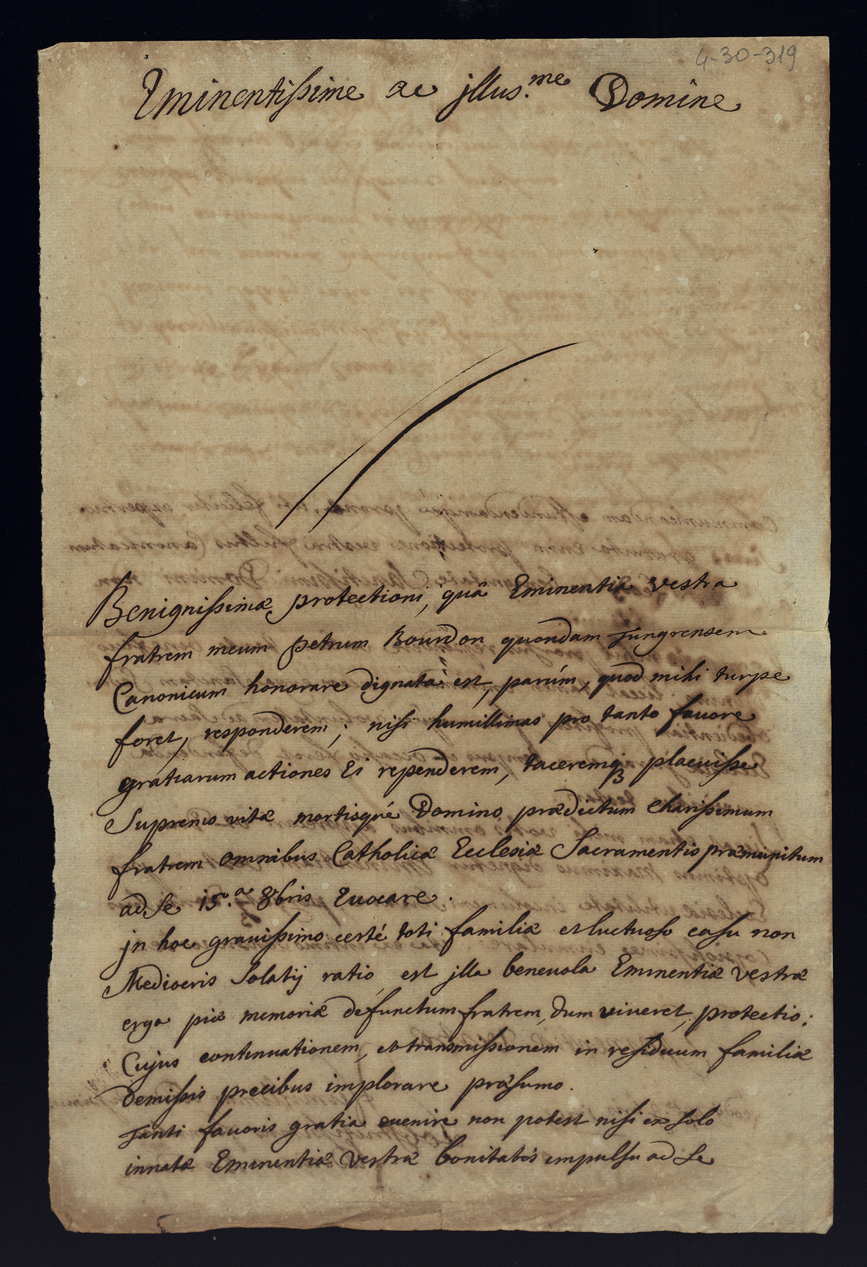 4-30-319
Eminentissime ac jllus.me Domine
Benignissimæ protectioni, quâ Eminentia vestra
fratrem meum petrum Bourdon quondam Tungrensem
Canonicum honorare dignata est, parúm, quod mihi turpe
foret, responderem; nisi humillimas pro tanto favore
gratiarum actiones Ei rependerem, taceremq3 placuisse
Supremo vitæ mortisqué Domino, prædictum charissimum
fratrem omnibus Catholicæ Ecclesiæ Sacramentis præmunitum
ad se 15.a 8bris Evocare.
jn hoc gravissimo certé toti familiæ et luctuoso casu non
Mediocris Solatij ratio, est jlla benevola Eminentiæ vestræ
erga piæ memoriæ defunctum fratrem, dum viveret, protectio;
Cujus continuationem, et transmissionem in residuum familiæ
Demissis precibus implorare præsumo.
Tanti favoris gratia evenire non potest nisi ex solo
innatæ Eminentiæ vestræ bonitatis impulsu ad se